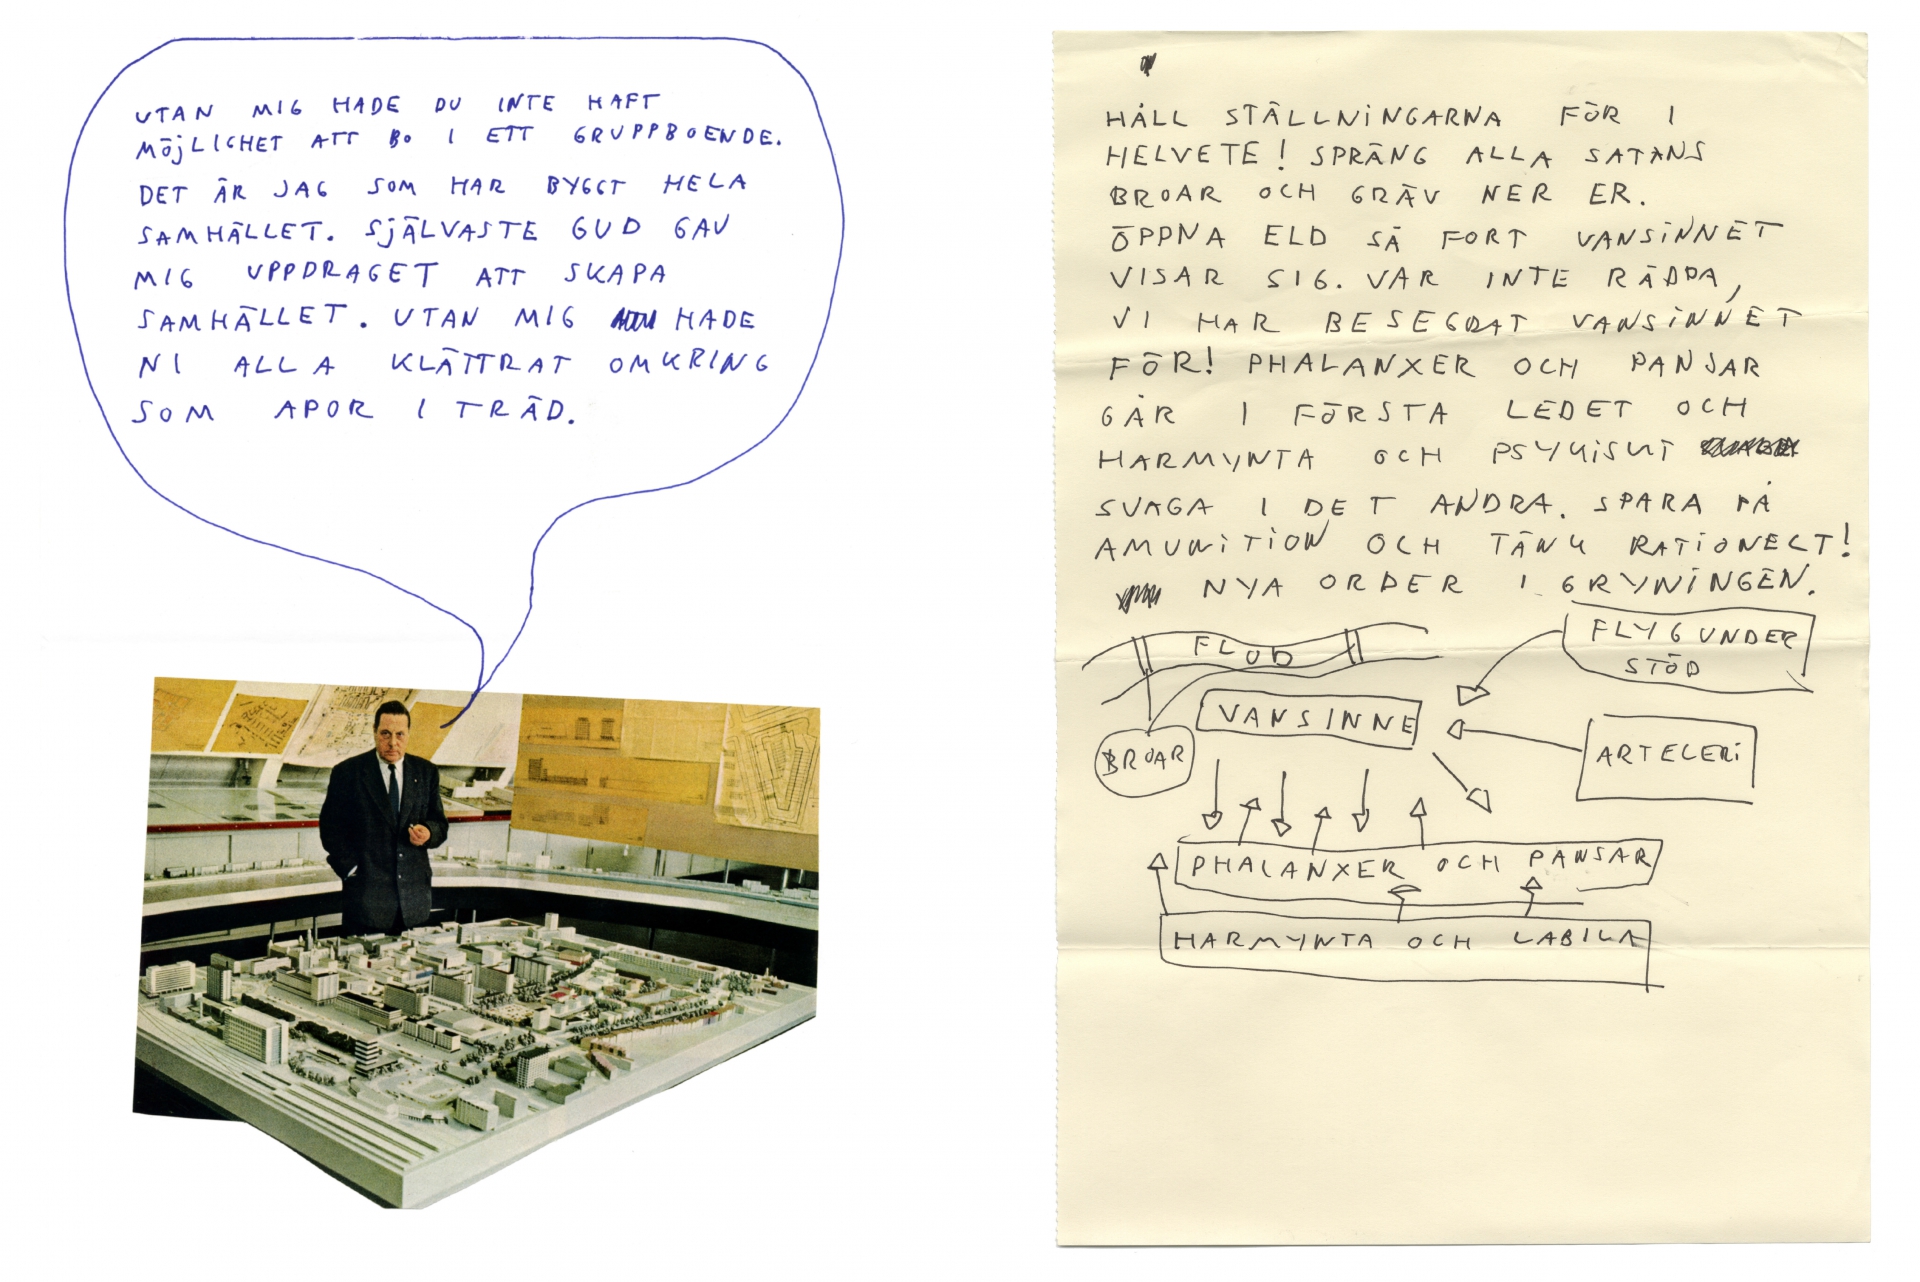 UTAN MIG HADE DU INTE HAFT
MÖJLIGHET ATT BO I ETT GRUPPBOENDE.
DET ÄR JAG SOM HAR BYGGT HELA
SAMHÄLLET. SJÄLVASTE GUD GAV
MIG UPPDRAGET ATT SKAPA
SAMHÄLLET. UTAN MIG HADE
NI ALLA KLÄTTRAT OMKRING
SOM APOR I TRÄD.
HÅLL STÄLLNINGARNA FÖR I
HELVETE! SPRÄNG ALLA SATANS
BROAR OCH GRÄV NER ER.
ÖPPNA ELD SÅ FORT VANSINNET
VISAR SIG. VAR INTE RÄDDA,
VI HAR BESEGRAT VANSINNET
FÖR! PHALANXER OCH PANSAR
GÅR I FÖRSTA LEDET OCH
HARMYNTA OCH PSYKISKT
SVAGA I DET ANDRA. SPARA PÅ
AMUNITION OCH TÄNK RATIONELLT!
NYA ORDER I GRYNINGEN.
FLOD
FLYGUNDER
STÖD
VANSINNE
BROAR
ARTELERI
PHALANXER OCH PANSAR
HARMYNTA OCH LABILA